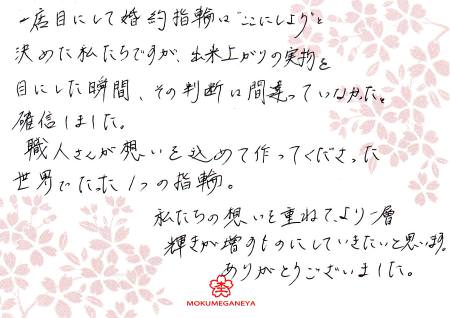 一店目にして婚約指輪は"ここにしよう"と
決めた私たちですが、出来上がりの実物を
目にした瞬間、その判断は間違っていなかったと
確信しました。
職人さんが想いを込めて作ってくださった
世界でたった1つの指輪。
私たちの想いを重ねて、より一層
輝きが増すものにしていきたいと思います。
ありがとうございました。
MOKUMEGANEYA